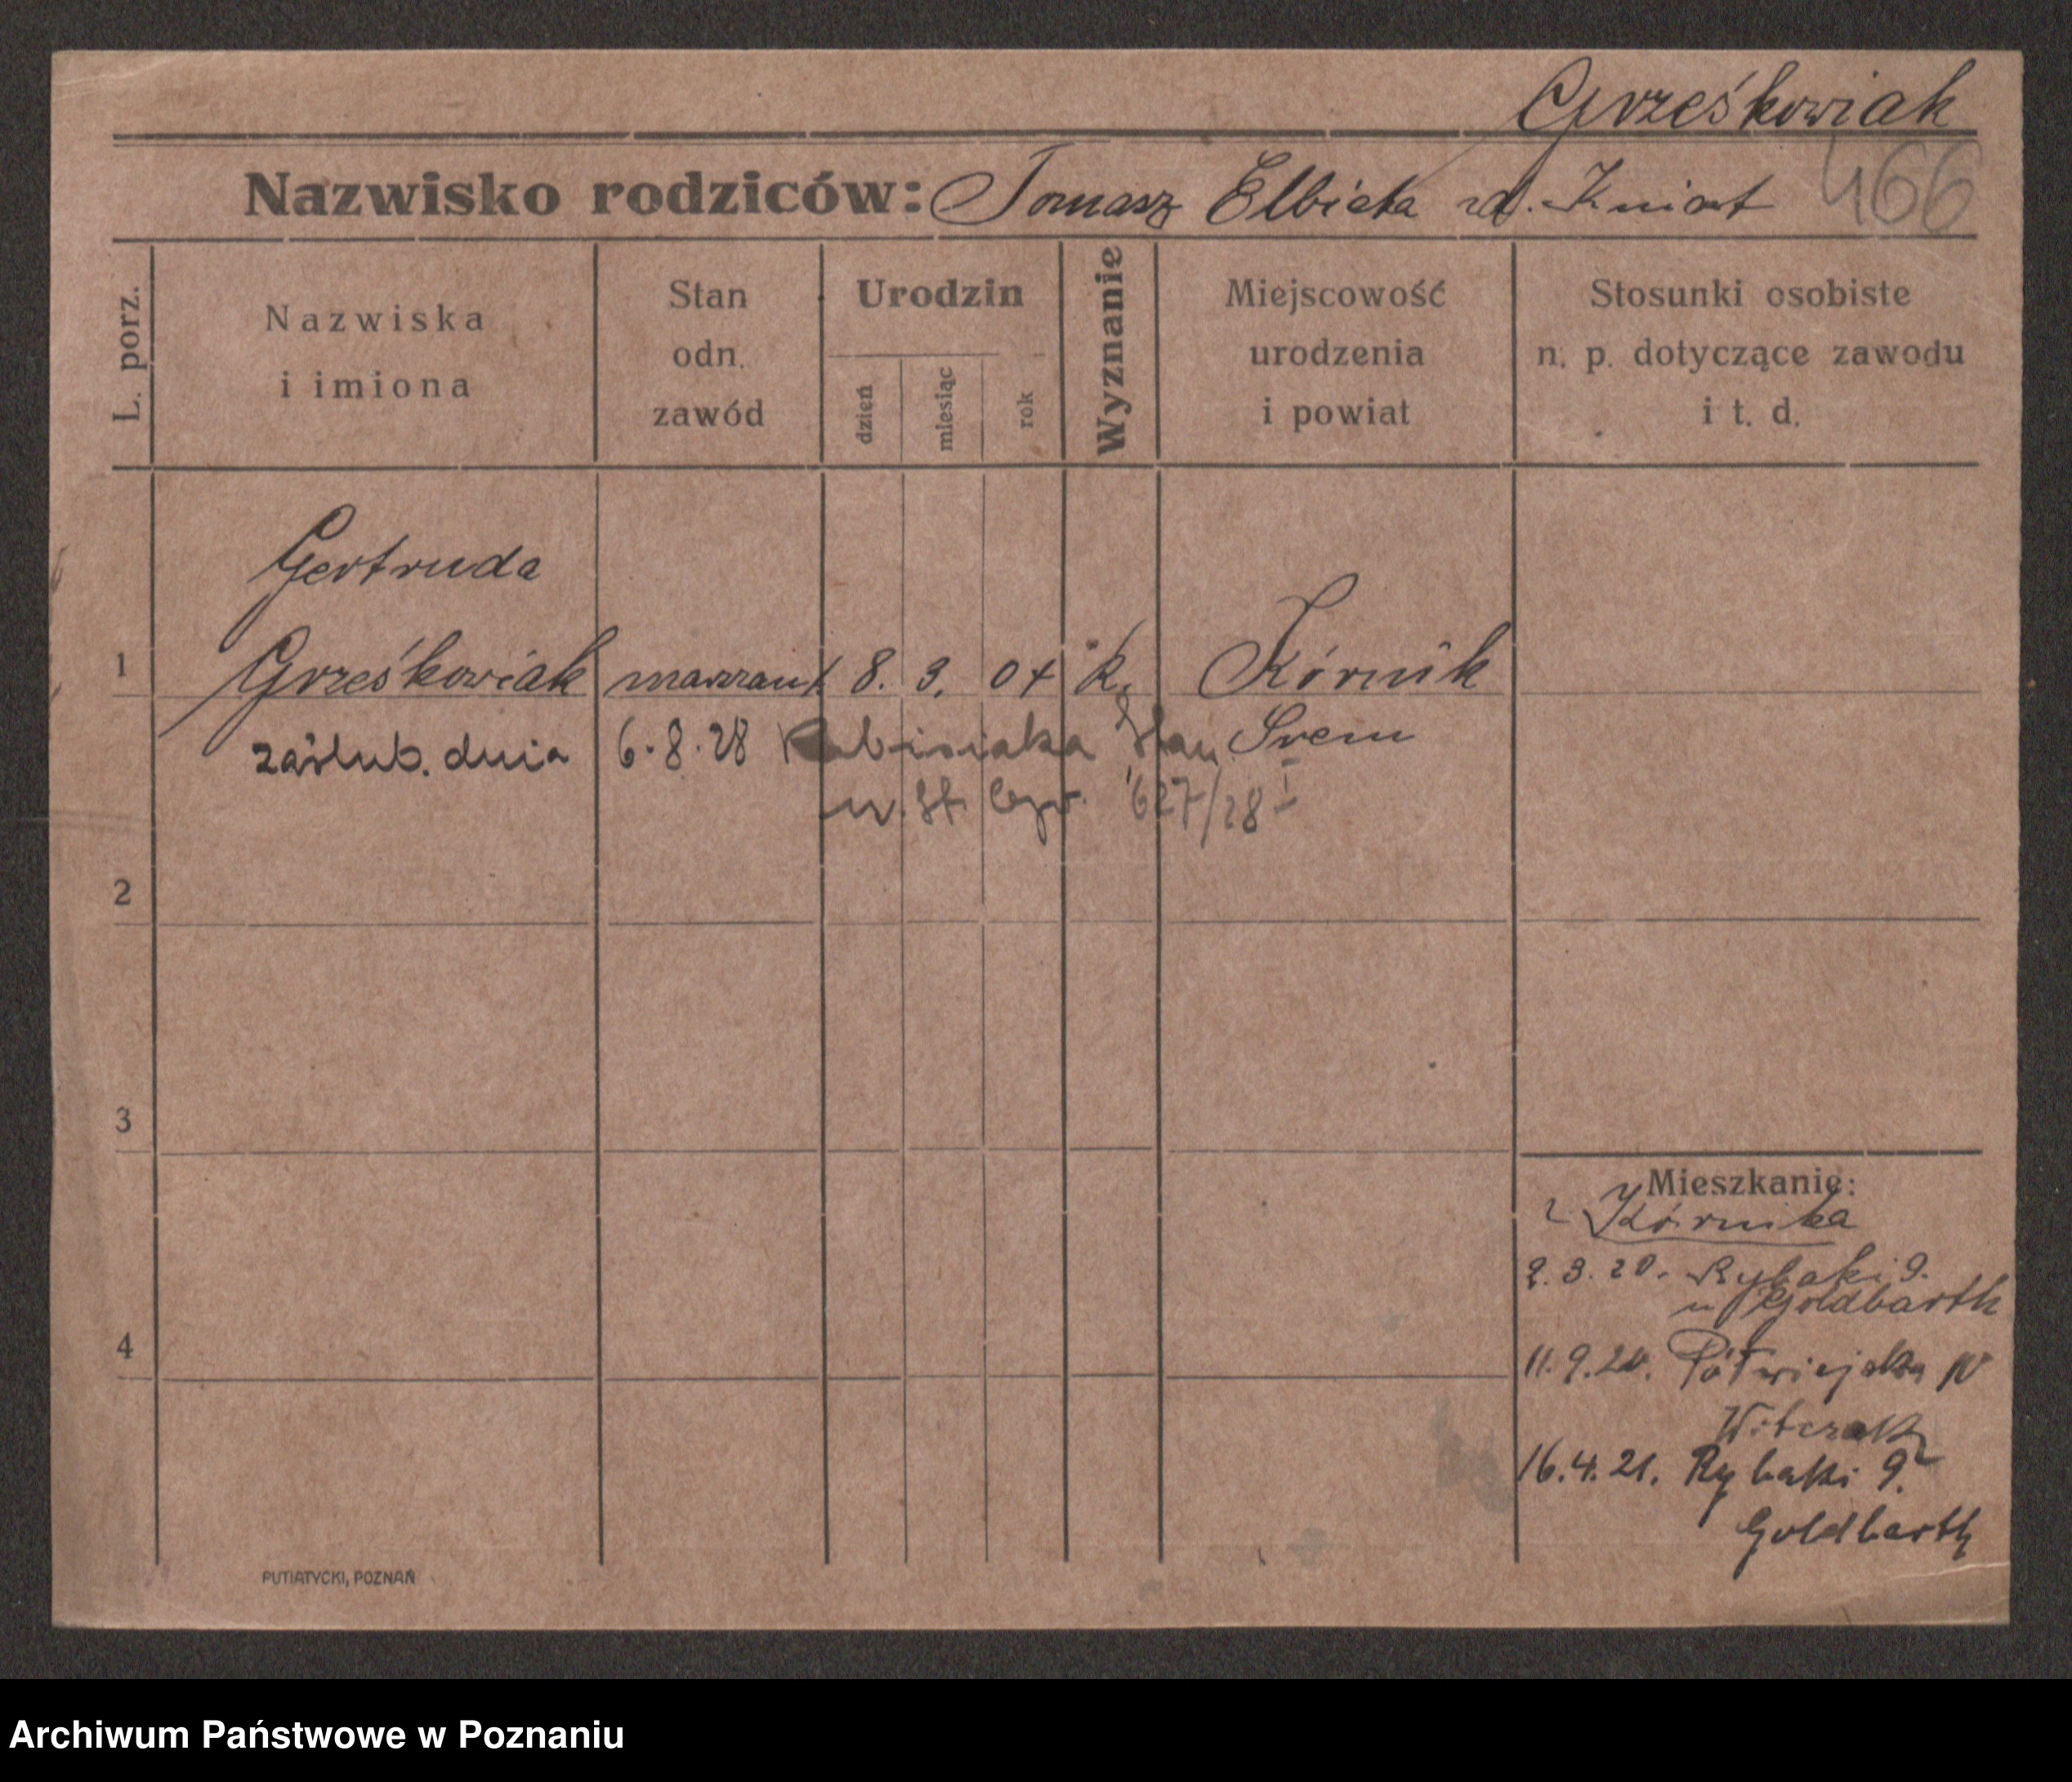 Grześkowiak
466
Nazwisko rodziców: Tomasz Elbieta rd. Kniat
L. porz.
Nazwiska
i imiona
Stan
odn.
zawód
Urodzin
dzień
miesiąc
rok
Wyznanie
Miejscowość
urodzenia
i powiat
Stosunki osobiste
n. p. dotyczące zawodu
i t. d.
Gertruda
1 Grześkowiak 8. 3. 04 k. Kórnik
zaślub. dnia 6.8.28 Stan. Srem
w. St. 627/28 I
2
3
4
Mieszkanie:
z Kórnika
2.3.20. Rybaki 9.
u Goldbarth
11.9.20. Półwiejska IV
Witczak
16.4.21. Rybaki 9.
Goldbarth
PUTIATYCKI, POZNAŃ
Archiwum Państwowe w Poznaniu